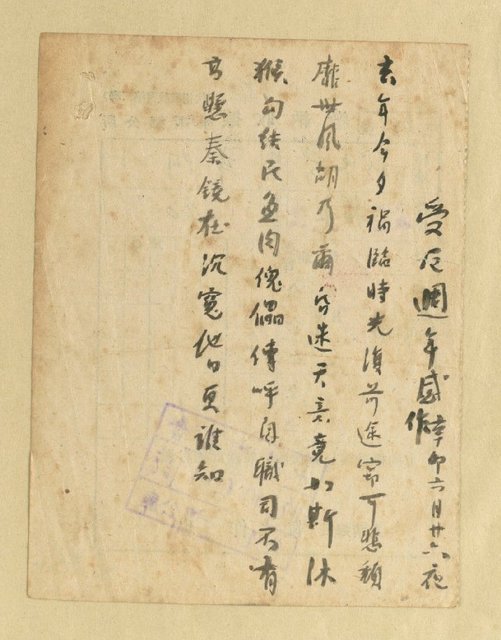 受厄週年感作 辛卯六月廿六夜
去年今夕禍臨時光復前途實可悲頹
靡世風胡乃爾昏迷天意竟如斯沐
猴勾結民魚肉傀儡傳呼自職司不有
高懸秦鏡在沉冤他日更誰知